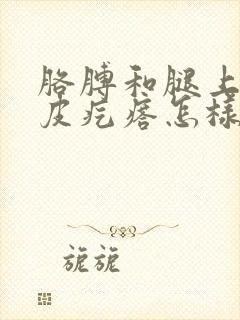 胳膊和腿上
皮疙瘩怎样
旎旎